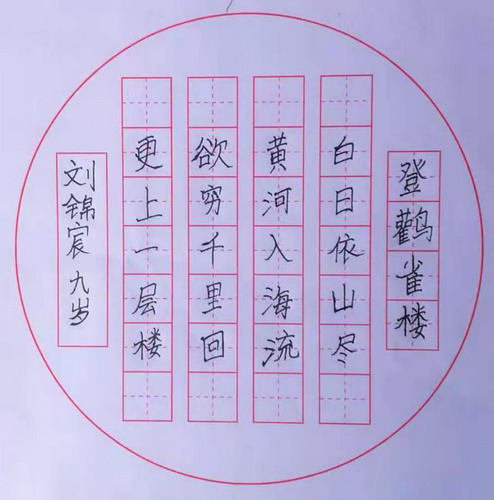 登鹳雀楼
白日依山尽
黄河入海流
欲穷千里回
更上一层楼
刘锦宸 九岁